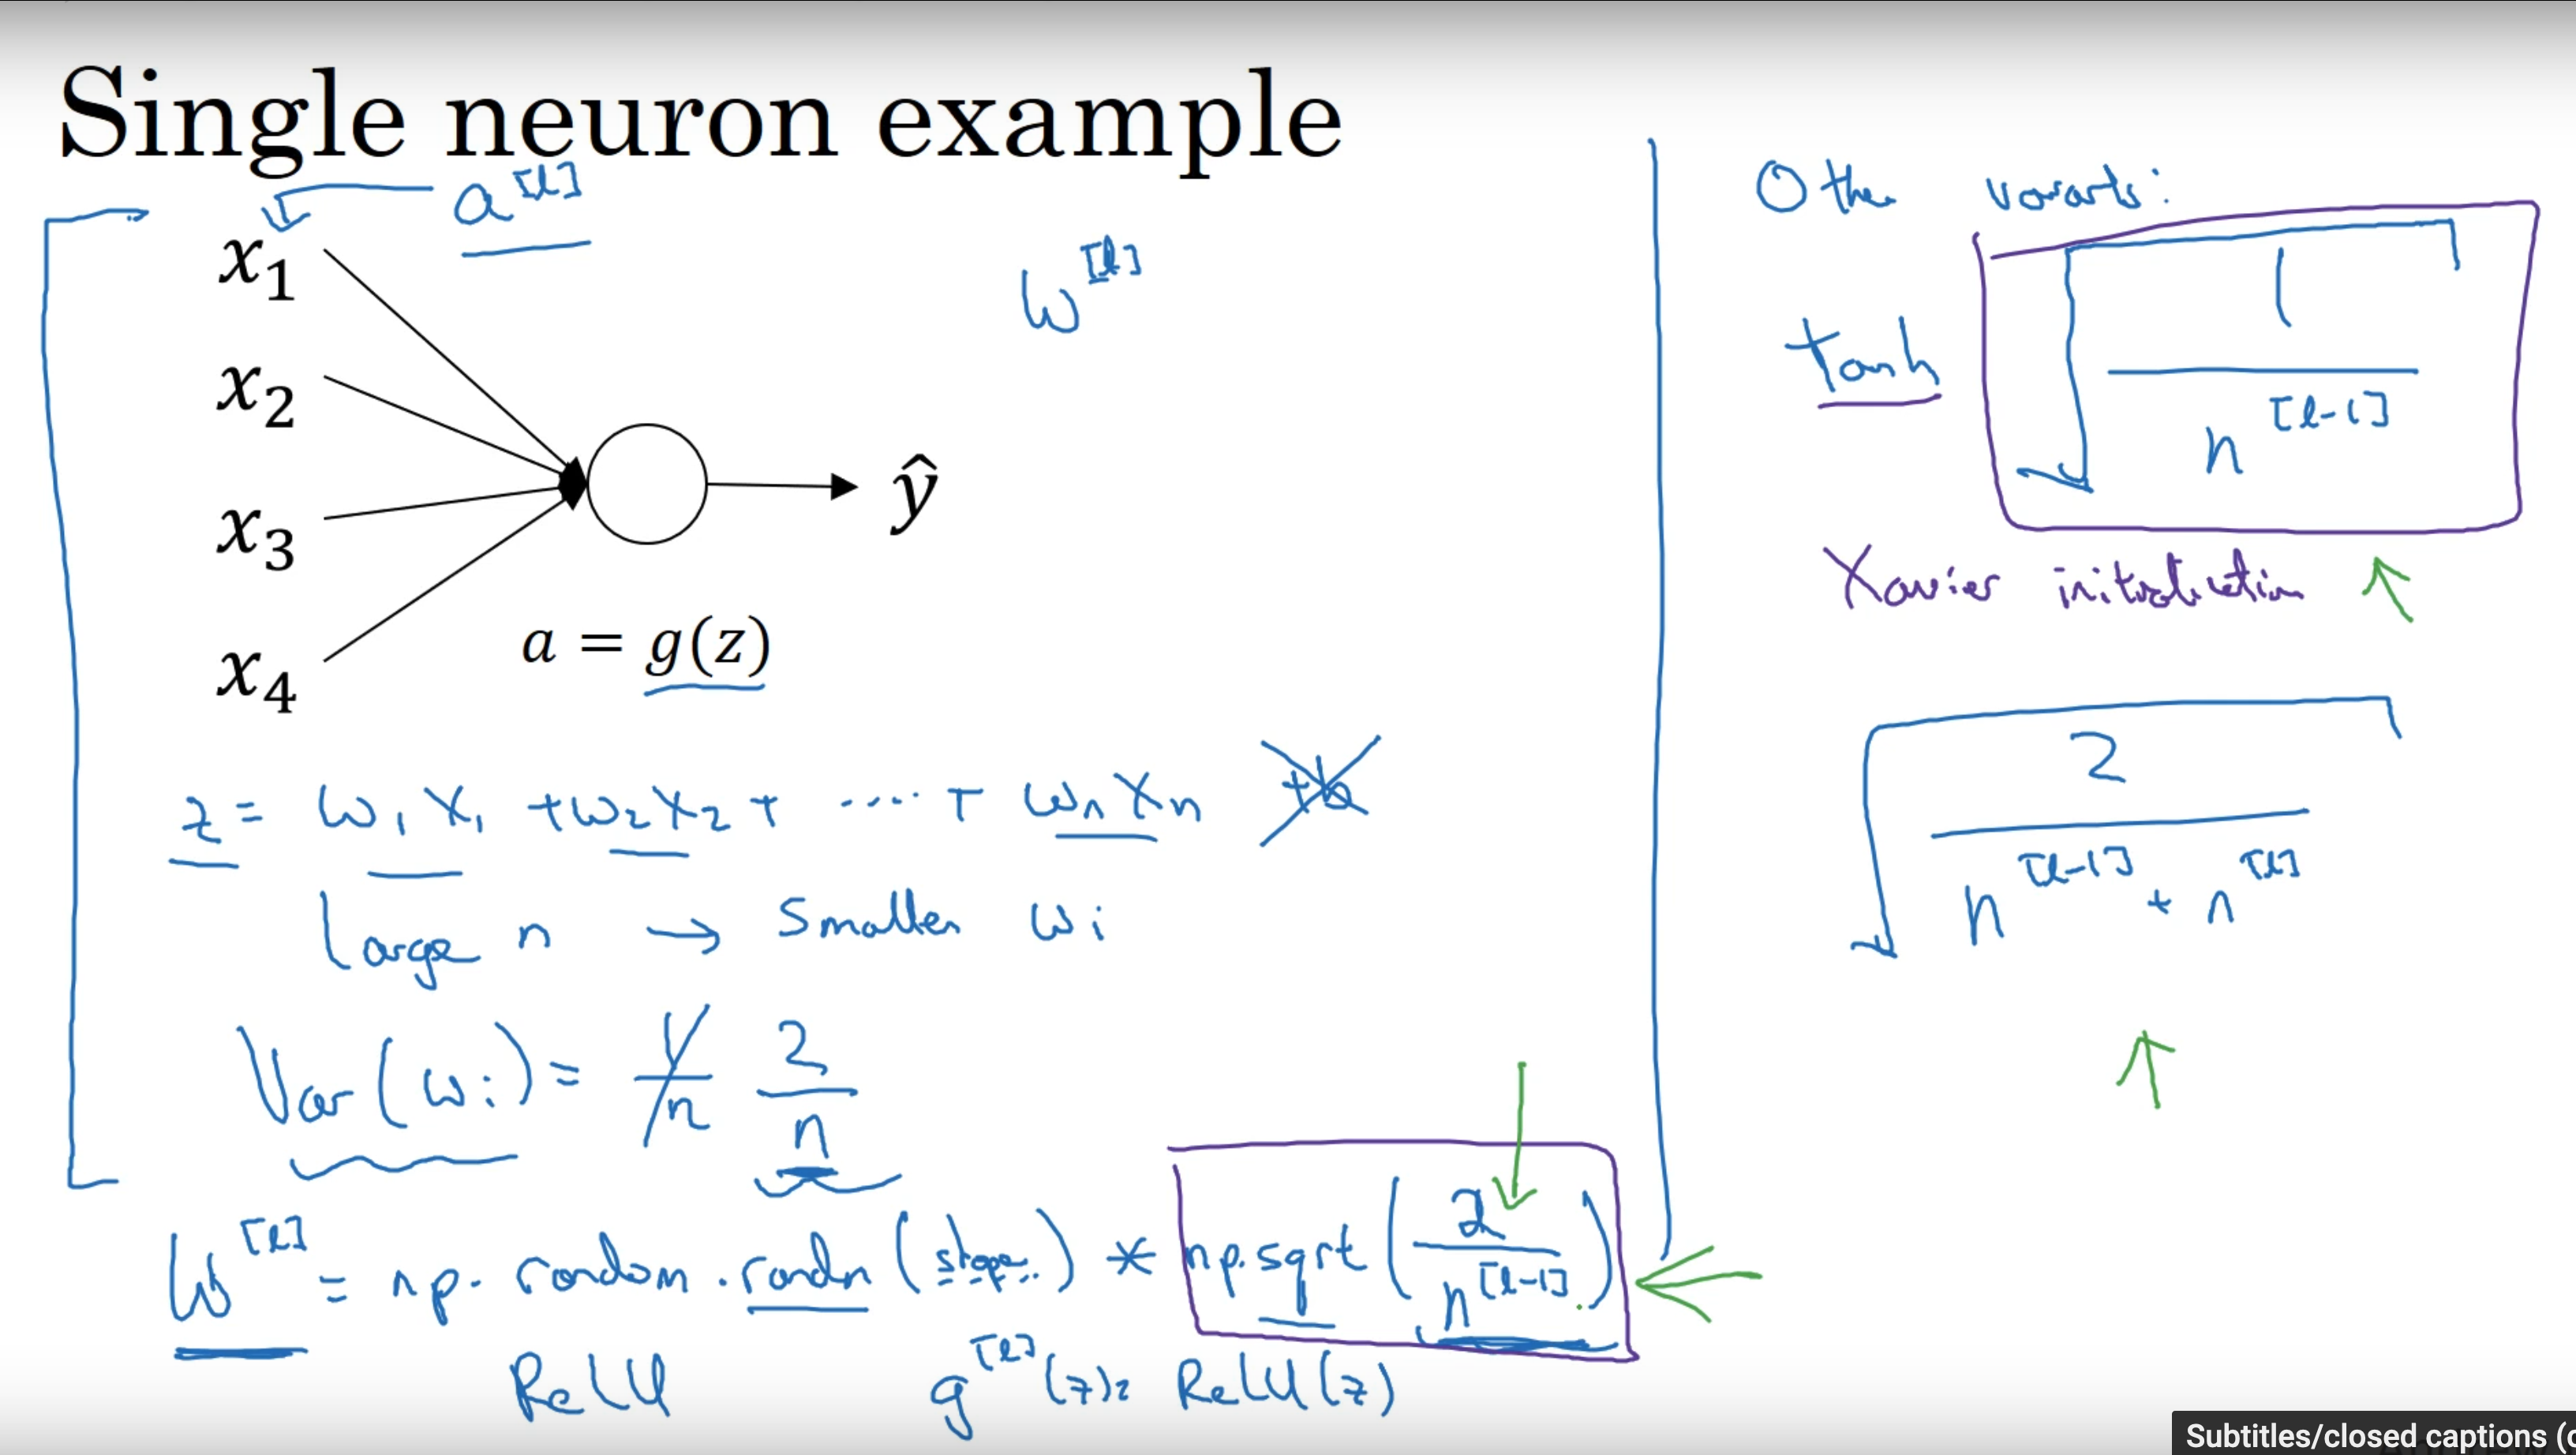 Single neuron example
a^[l]
x₁
W^[l]
x₂
x₃
ŷ
x₄
a = g(z)
z = w₁x₁ + w₂x₂ + ..... + wₙxₙ +b
Large n → Smaller wᵢ
Var(wᵢ) = 1/n 2/n
W^[l] = np.random.randn(shape) * np.sqrt(2/n^[l-1])
ReLU g^[l](z) = ReLU(z)
Other variants:
tanh √(1/n^[l-1])
Xavier initialization
√(2/(n^[l-1] + n^[l]))
Subtitles/closed captions (c